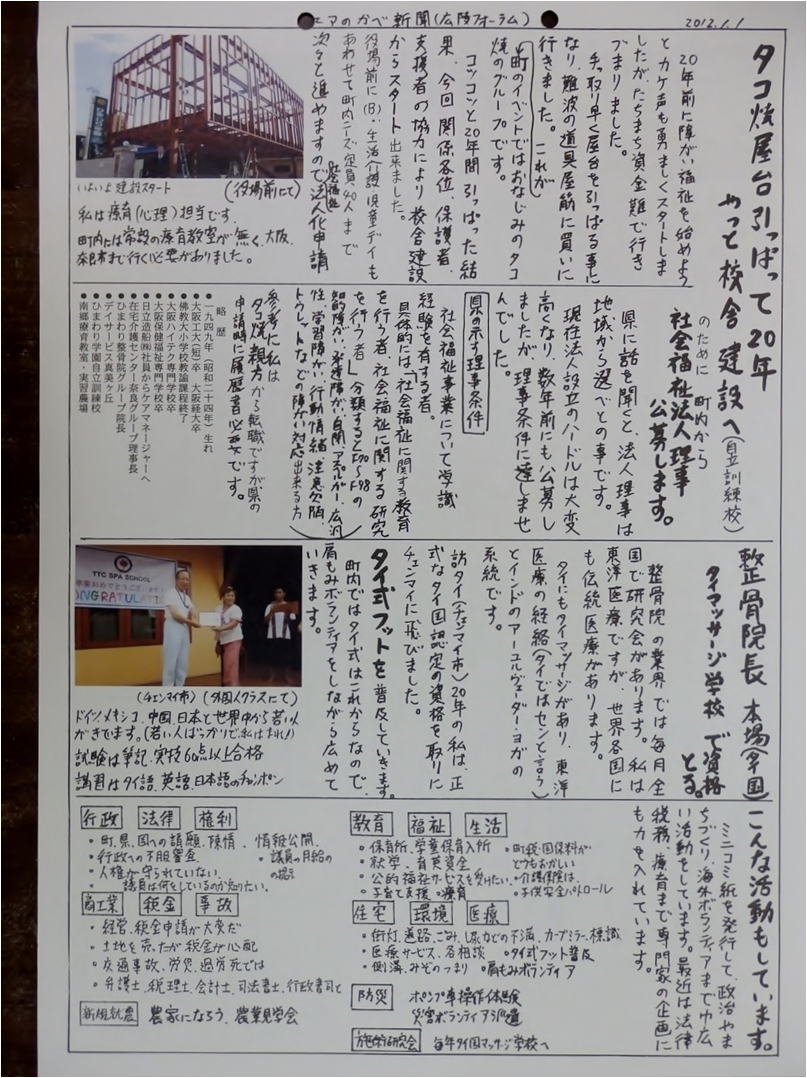 エアのかべ新聞(広陵フォーラム)
2012.1.1
タコ焼屋台引っぱって20年
やっと校舎建設へ(自立訓練校)
20年前に障がい福祉を始めよう
とカケ声も勇ましくスタートしま
したが、たちまち資金難で行き
づまりました。
手っ取り早く屋台を引っぱる事に
なり、難波の道具屋筋に買いに
行きました。これが
町のイベントではおなじみのタコ
焼のグループです。
コツコツと20年間引っぱった結
果、今回関係各位、保護者、
支援者の協力により校舎建設
からスタート出来ました。
役場前に(B)生活介護、児童デイも
あわせて町内ニーズ定員、40人まで
次々と進めますので社会福祉法人化申請
いよいよ建設スタート
(役場前にて)
私は療育(心理)担当です。
町内には常設の療育教室が無く、大阪、
奈良市まで行く必要がありました。
のために 町内から
社会福祉法人理事
公募します。
県に話を聞くと、法人理事は
地域から選べとの事です。
現在法人設立のハードルは大変
高くなり、数年前にも公募し
ましたが、理事条件に達しませ
んでした。
県の示す理事条件
社会福祉事業について学識
経験を有する者。
具体的には、「社会福祉に関する教育
を行う者、社会福祉に関する研究
を行う者」分類するとF70〜F98の
知的障がい、発達障がい、自閉、アスペルガー、広汎
性、学習障がい、行動情緒、注意欠陥、
トゥレットなどの障がい対応出来る方
参考に私は
タコ焼親方から転職ですが県の
申請時に履歴書必要です。
略歴
●一九四九年(昭和二十四年)生れ
●大阪工大(短)卒 大阪経大卒
●佛教大小学校教諭課程終了
●大阪ハイテク専門学校卒
●大阪保健福祉専門学校卒
●日立造船㈱社員からケアマネージャーへ
●在宅介護センター奈良グループ理事長
●ひまわり整骨院グループ院長
●デイサービス真美ヶ丘
●ひまわり学園自立訓練校
●南郷療育教室・実習農場
整骨院長 本場(タイ国)
タイマッサージ学校で資格
とる。
整骨院の業界では毎月全
国で研究会があります。私は
東洋医療ですが、世界各国に
も伝統医療があります。
タイにもタイマッサージがあり、東洋
医療の経絡(タイではセンと言う)
とインドのアーユルヴェーダー・ヨガの
系統です。
訪タイ(チェンマイ市)20年の私は、正
式なタイ国認定の資格を取りに
チェンマイに飛びました。
タイ式フットを普及していきます。
町内ではタイ式はこれからなので、
肩もみボランティアをしながら広めて
いきます。
TTC SPA SCHOOL
卒業おめでとうございます
CONGRATULATI
(チェンマイ市)(外国人クラスにて)
ドイツ、メキシコ、中国、日本と世界中から若い人
がきてます。(若い人ばっかりで私はまれ!)
試験は筆記、実技60点以上合格
講習はタイ語、英語、日本語のチャンポン
こんな活動もしています。
ミニコミ紙を発行して、政治やま
ちづくり、海外ボランティアまで巾広
い活動をしています。最近は法律
税務、療育まで専門家の企画に
も力を入れています。
教育 福祉 生活
・保育所、学童保育入所
・就学、育英資金
・公的福祉サービスを受けたい
・子育て支援 ・療育
・町税・国保料が
どうもおかしい
・介護保険は、
・子供安全パトロール
住宅 環境 医療
・街灯、道路、ごみ、し尿などの不満、カーブミラー、標識
・医療サービス、各相談 ・タイ式フット普及
・側溝、みぞのつまり ・肩もみボランティア
防災 ポンプ車操作体験
災害ボランティア派遣
施術研究会 毎年タイ国マッサージ学校へ
行政 法律 権利
・町、県、国への請願、陳情、情報公開
・行政への不服審査
・人権が守られていない
・議員は何をしているのか知りたい
・議員の月給の
の提示
商工業 税金 事故
・経営、税金申請が大変だ
・土地を売ったが税金が心配
・交通事故、労災、過労死では
・弁護士、税理士、会計士、司法書士、行政書司と
新規就農 農家になろう、農業見学会